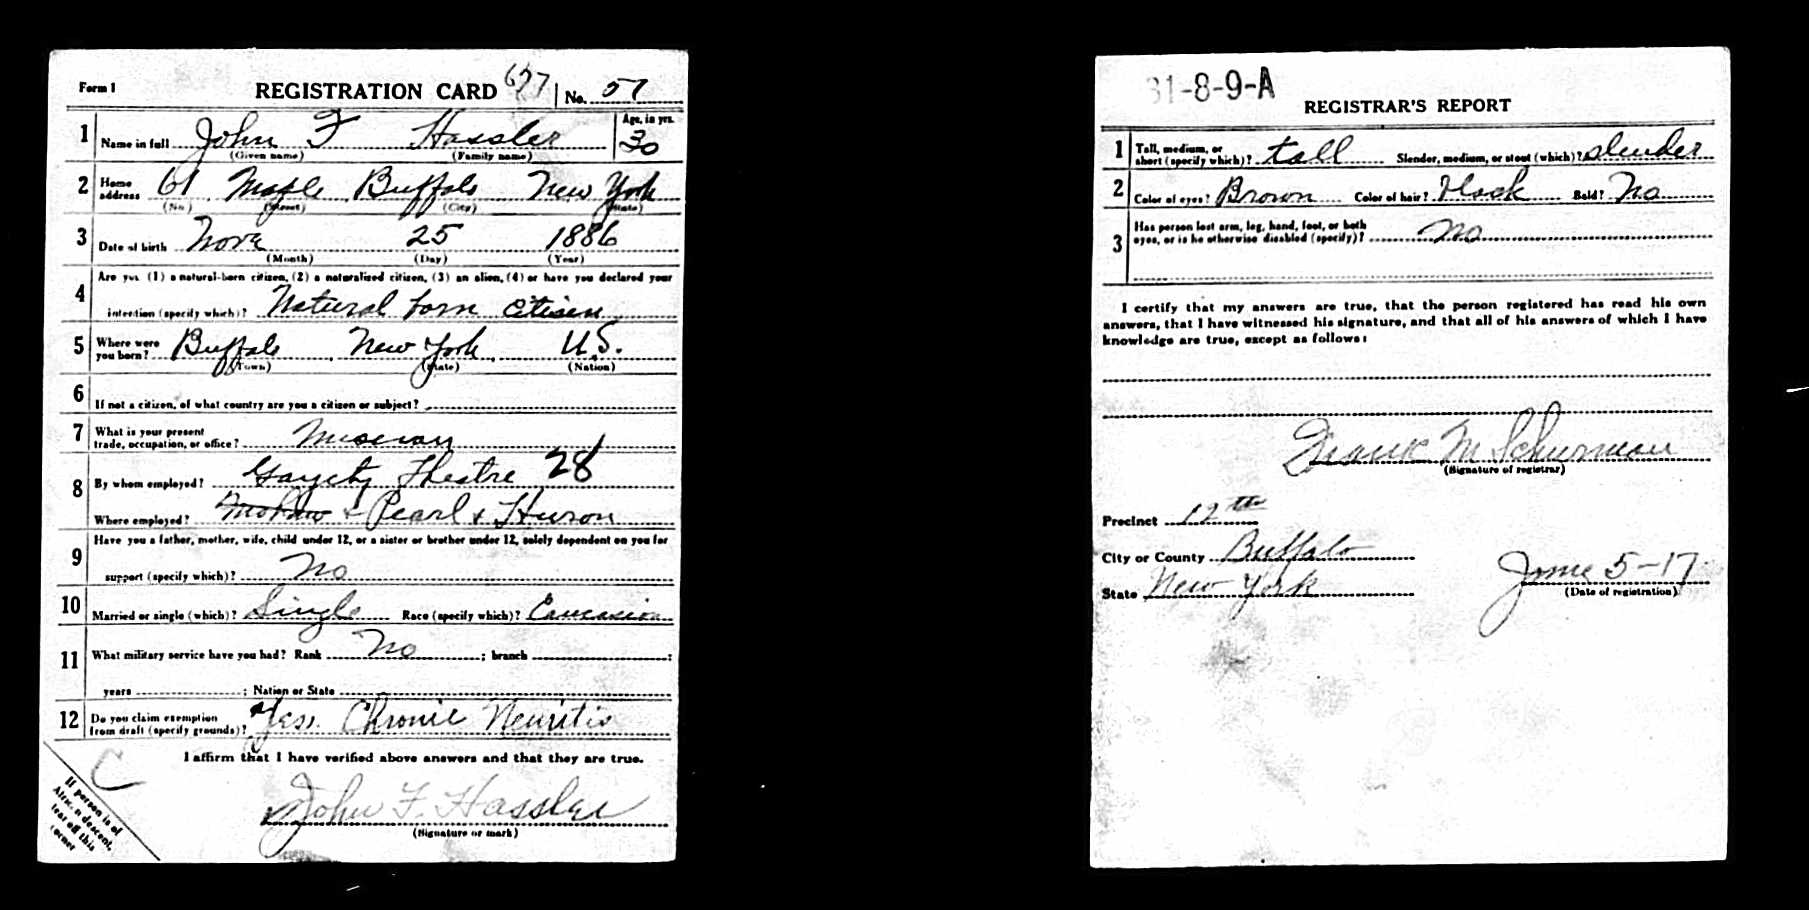 Form 1 REGISTRATION CARD 677 No. 57
1 Name in full John F Hassler Age, in yrs. 30
(Given name) (Family name)
2 Home address 61 Maple Buffalo New York
(No.) (Street) (City) (State)
3 Date of birth Nove 25 1886
(Month) (Day) (Year)
4 Are you (1) a natural-born citizen, (2) a naturalized citizen, (3) an alien, (4) or have you declared your
intention (specify which)? Natural born Citisen
5 Where were you born? Buffalo New York U.S.
(Town) (State) (Nation)
6 If not a citizen, of what country are you a citizen or subject?
7 What is your present trade, occupation, or office? Musician
8 By whom employed? Gayety Theatre 28
Where employed? Mohaw & Pearl & Huron
9 Have you a father, mother, wife, child under 12, or a sister or brother under 12, solely dependent on you for
support (specify which)? No
10 Married or single (which)? Single Race (specify which)? Caucasion
11 What military service have you had? Rank No ; branch ;
years ; Nation or State
12 Do you claim exemption from draft (specify grounds)? Yes. Chronic Neuritis
I affirm that I have verified above answers and that they are true.
C
John F. Hassler
(Signature or mark)
If person is of
African descent,
tear off this
corner
31-8-9-A
REGISTRAR'S REPORT
1 Tall, medium, or short (specify which)? tall Slender, medium, or stout (which)? slender
2 Color of eyes? Brown Color of hair? Black Bald? No
3 Has person lost arm, leg, hand, foot, or both
eyes, or is he otherwise disabled (specify)? No
I certify that my answers are true, that the person registered has read his own
answers, that I have witnessed his signature, and that all of his answers of which I have
knowledge are true, except as follows:
Frank M Schurman
(Signature of registrar)
Precinct 12th
City or County Buffalo
State New York
June 5-17
(Date of registration)